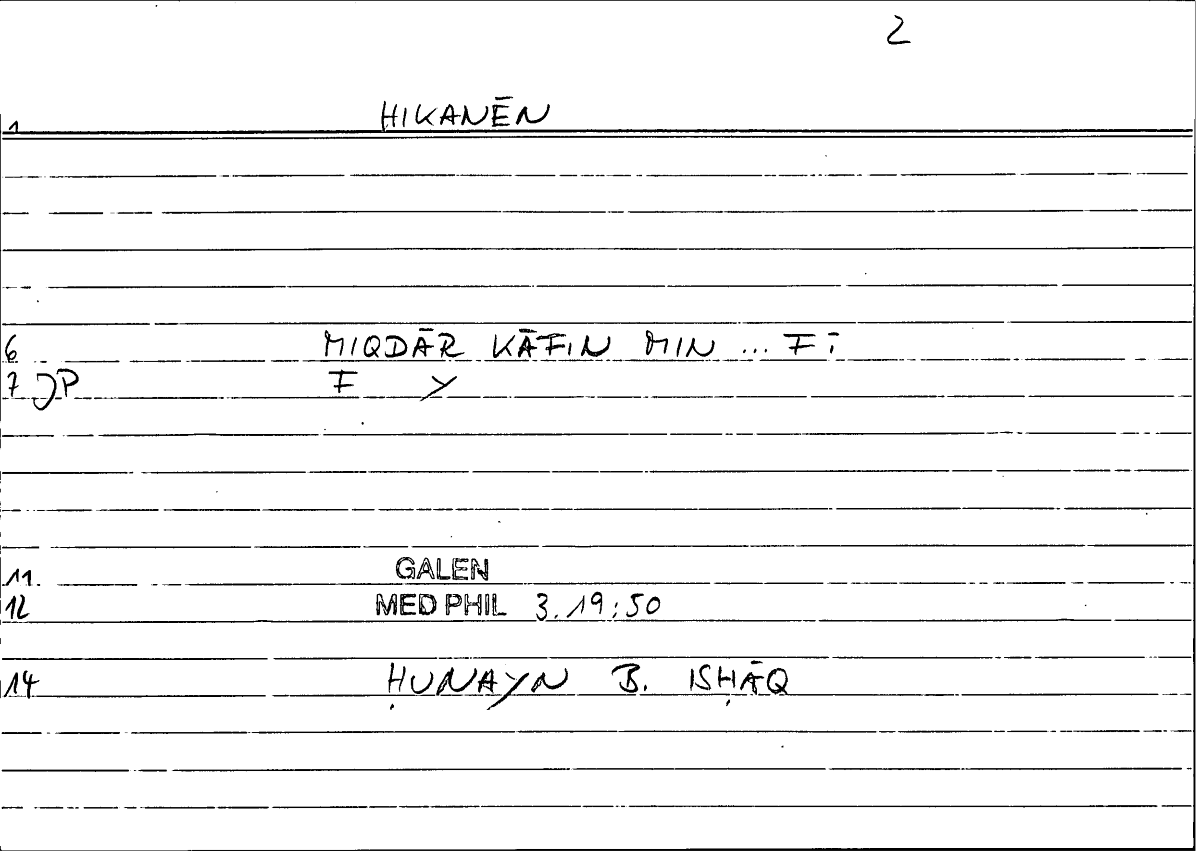 2
1 HIKANĒN
6 MIQDĀR KĀFIN MIN ... FĪ
7 JP F Y
11. GALEN
12 MED PHIL 3.19:50
14 ḤUNAYN B. ISḤĀQ